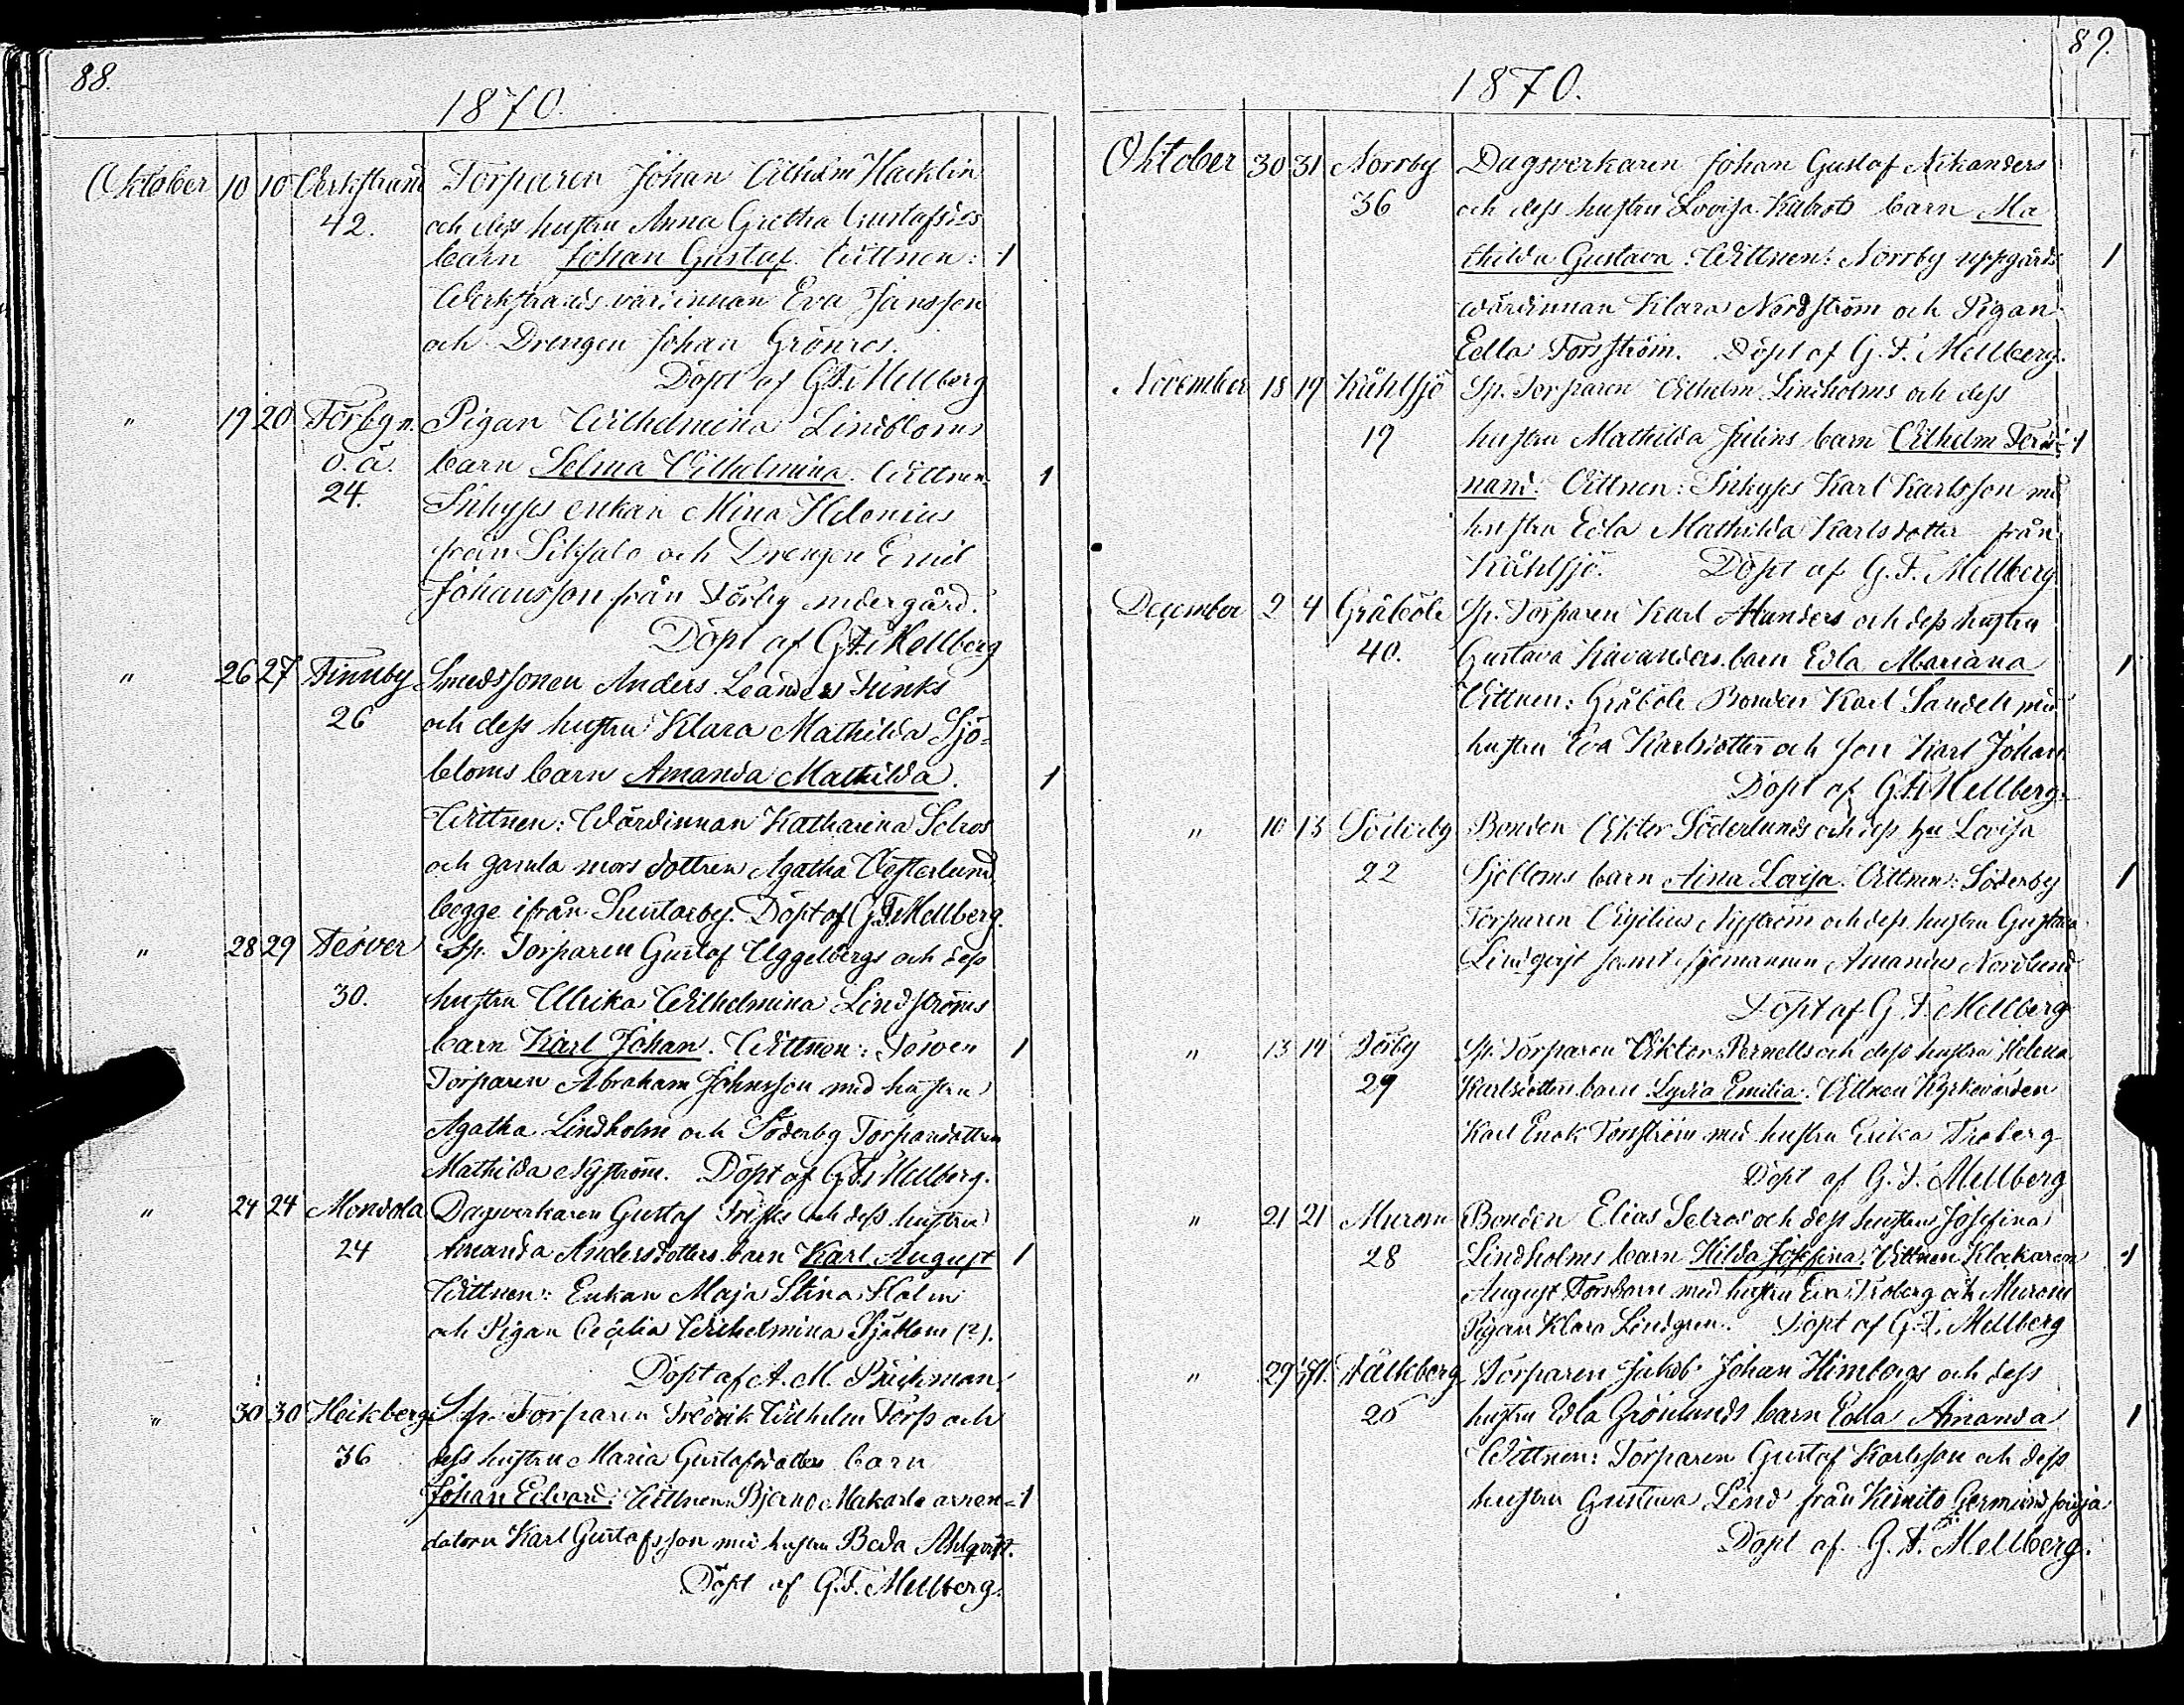 88.
1870.
Oktober 10 10 Verkstrand Torparen Johan Vilhelm Hacklin
42. och dess hustru Anna Gretha Gustafsdos
barn Johan Gustaf. Vittnen: 1
Verkstrands värdinnan Eva Jansson
och Drengen Johan Grönros.
Döpt af G.F. Mellberg
" 19 20 Förbyn. Pigan Vilhelmina Lindbloms
o. ä. barn Selma Vilhelmina. Vittnen: 1
24. Inhyses enkan Mina Helenius
från Siksalo och Drengen Emil
Johansson från Förby nedergård.
Döpt af G.F. Mellberg
" 26 27 Finnby Smedssonen Anders Leanders Funks
26 och dess hustru Klara Mathilda Sjö-
bloms barn Amanda Mathilda. 1
Vittnen: Värdinnan Katharina Selros
och gamla mors dottren Agatha Vesterlund,
begge ifrån Suntarby. Döpt af G.F. Mellberg.
" 28 29 Tesver Sp. Torparen Gustaf Uggelbergs och dess
30. hustru Ulrika Vilhelmina Lindströms
barn Karl Johan. Vittnen: 1
Torparen Abraham Johnsson med hustru
Agatha Lindholm och Söderby Torpardottren
Mathilda Nyström. Döpt af G.F. Mellberg.
" 24 24 Mondola Dagsverkaren Gustaf och dess hustru
24 Amanda Andersdotters barn Karl August 1
Vittnen: Enkan Maja Stina Holm
och Pigan Cecilia Vilhelmina Sjöblom (?).
Döpt af A. M. Bäckman.
" 30 30 Höikberg Sp. Torparen Fredrik Vilhelm Törs och
36 dess hustru Maria Gustafsdotters barn
Johan Edvard. Vittnen: Bjerno Makarla arren- 1
datorn Karl Gustafsson med hustru Beda Ahlqvist.
Döpt af G.F. Mellberg.
89.
1870.
Oktober 30 31 Norrby Dagsverkaren Johan Gustaf Nikanders
36 och dess hustru Lovisa barn Ma
thilda Gustava. Vittnen: Norrby uppgårds 1
värdinnan Klara Nordström och Pigan
Edla Forsström. Döpt af G.F. Mellberg.
November 18 19 Kåhlsjö Sp. Torparen Vilhelm Lindholms och dess
19 hustru Mathilda Julins barn Vilhelm Ferdi- 1
nand. Vittnen: Inhyses Karl Karlsson med
hustru Edla Mathilda Karlsdotter från
Kåhlsjö. Döpt af G.F. Mellberg
December 2 4 Gräböle Sp. Torparen Karl och dess hustru
40. Gustava Kavanders barn Edla Mariana 1
Vittnen: Gräböle Bonden Karl Sandell med
hustru Eva Karlsdotter och son Karl Johan
Döpt af G.F. Mellberg.
" 10 13 Söderby Bonden Viktor Söderlunds och dess hu Lovisa
22 Sjöbloms barn Aina Lovisa. Vittnen: Söderby 1
Torparen Vigilius Nyström och dess hustru Gustava
Lindqvist samt sjömannen Amandus Nordlund
Döpt af G.F. Mellberg
" 13 14 Förby Sp. Torparen Viktor Pernells och dess hustru Helena
29 Karlsdotters barn Lydia Emilia. Vittnen Kyrkovärden
Karl Enok Forsström med hustru Erika Froberg
Döpt af G.F. Mellberg
" 21 21 Murom Bonden Elias Selros och dess hustru Josefina
28 Lindholms barn Hilda Josefina. Vittnen Klockaren 1
August Forsbom med hustru Eva Froberg och Murom
Pigan Klara Lindgren. Döpt af G.F. Mellberg
" 29 Fälkberg Torparen Jakob Johan Himbergs och dess
26 hustru Edla Grönlunds barn Edla Amanda 1
Vittnen: Torparen Gustaf Karlsson och dess
hustru Gustava Lind från Kimito
Döpt af G.F. Mellberg.